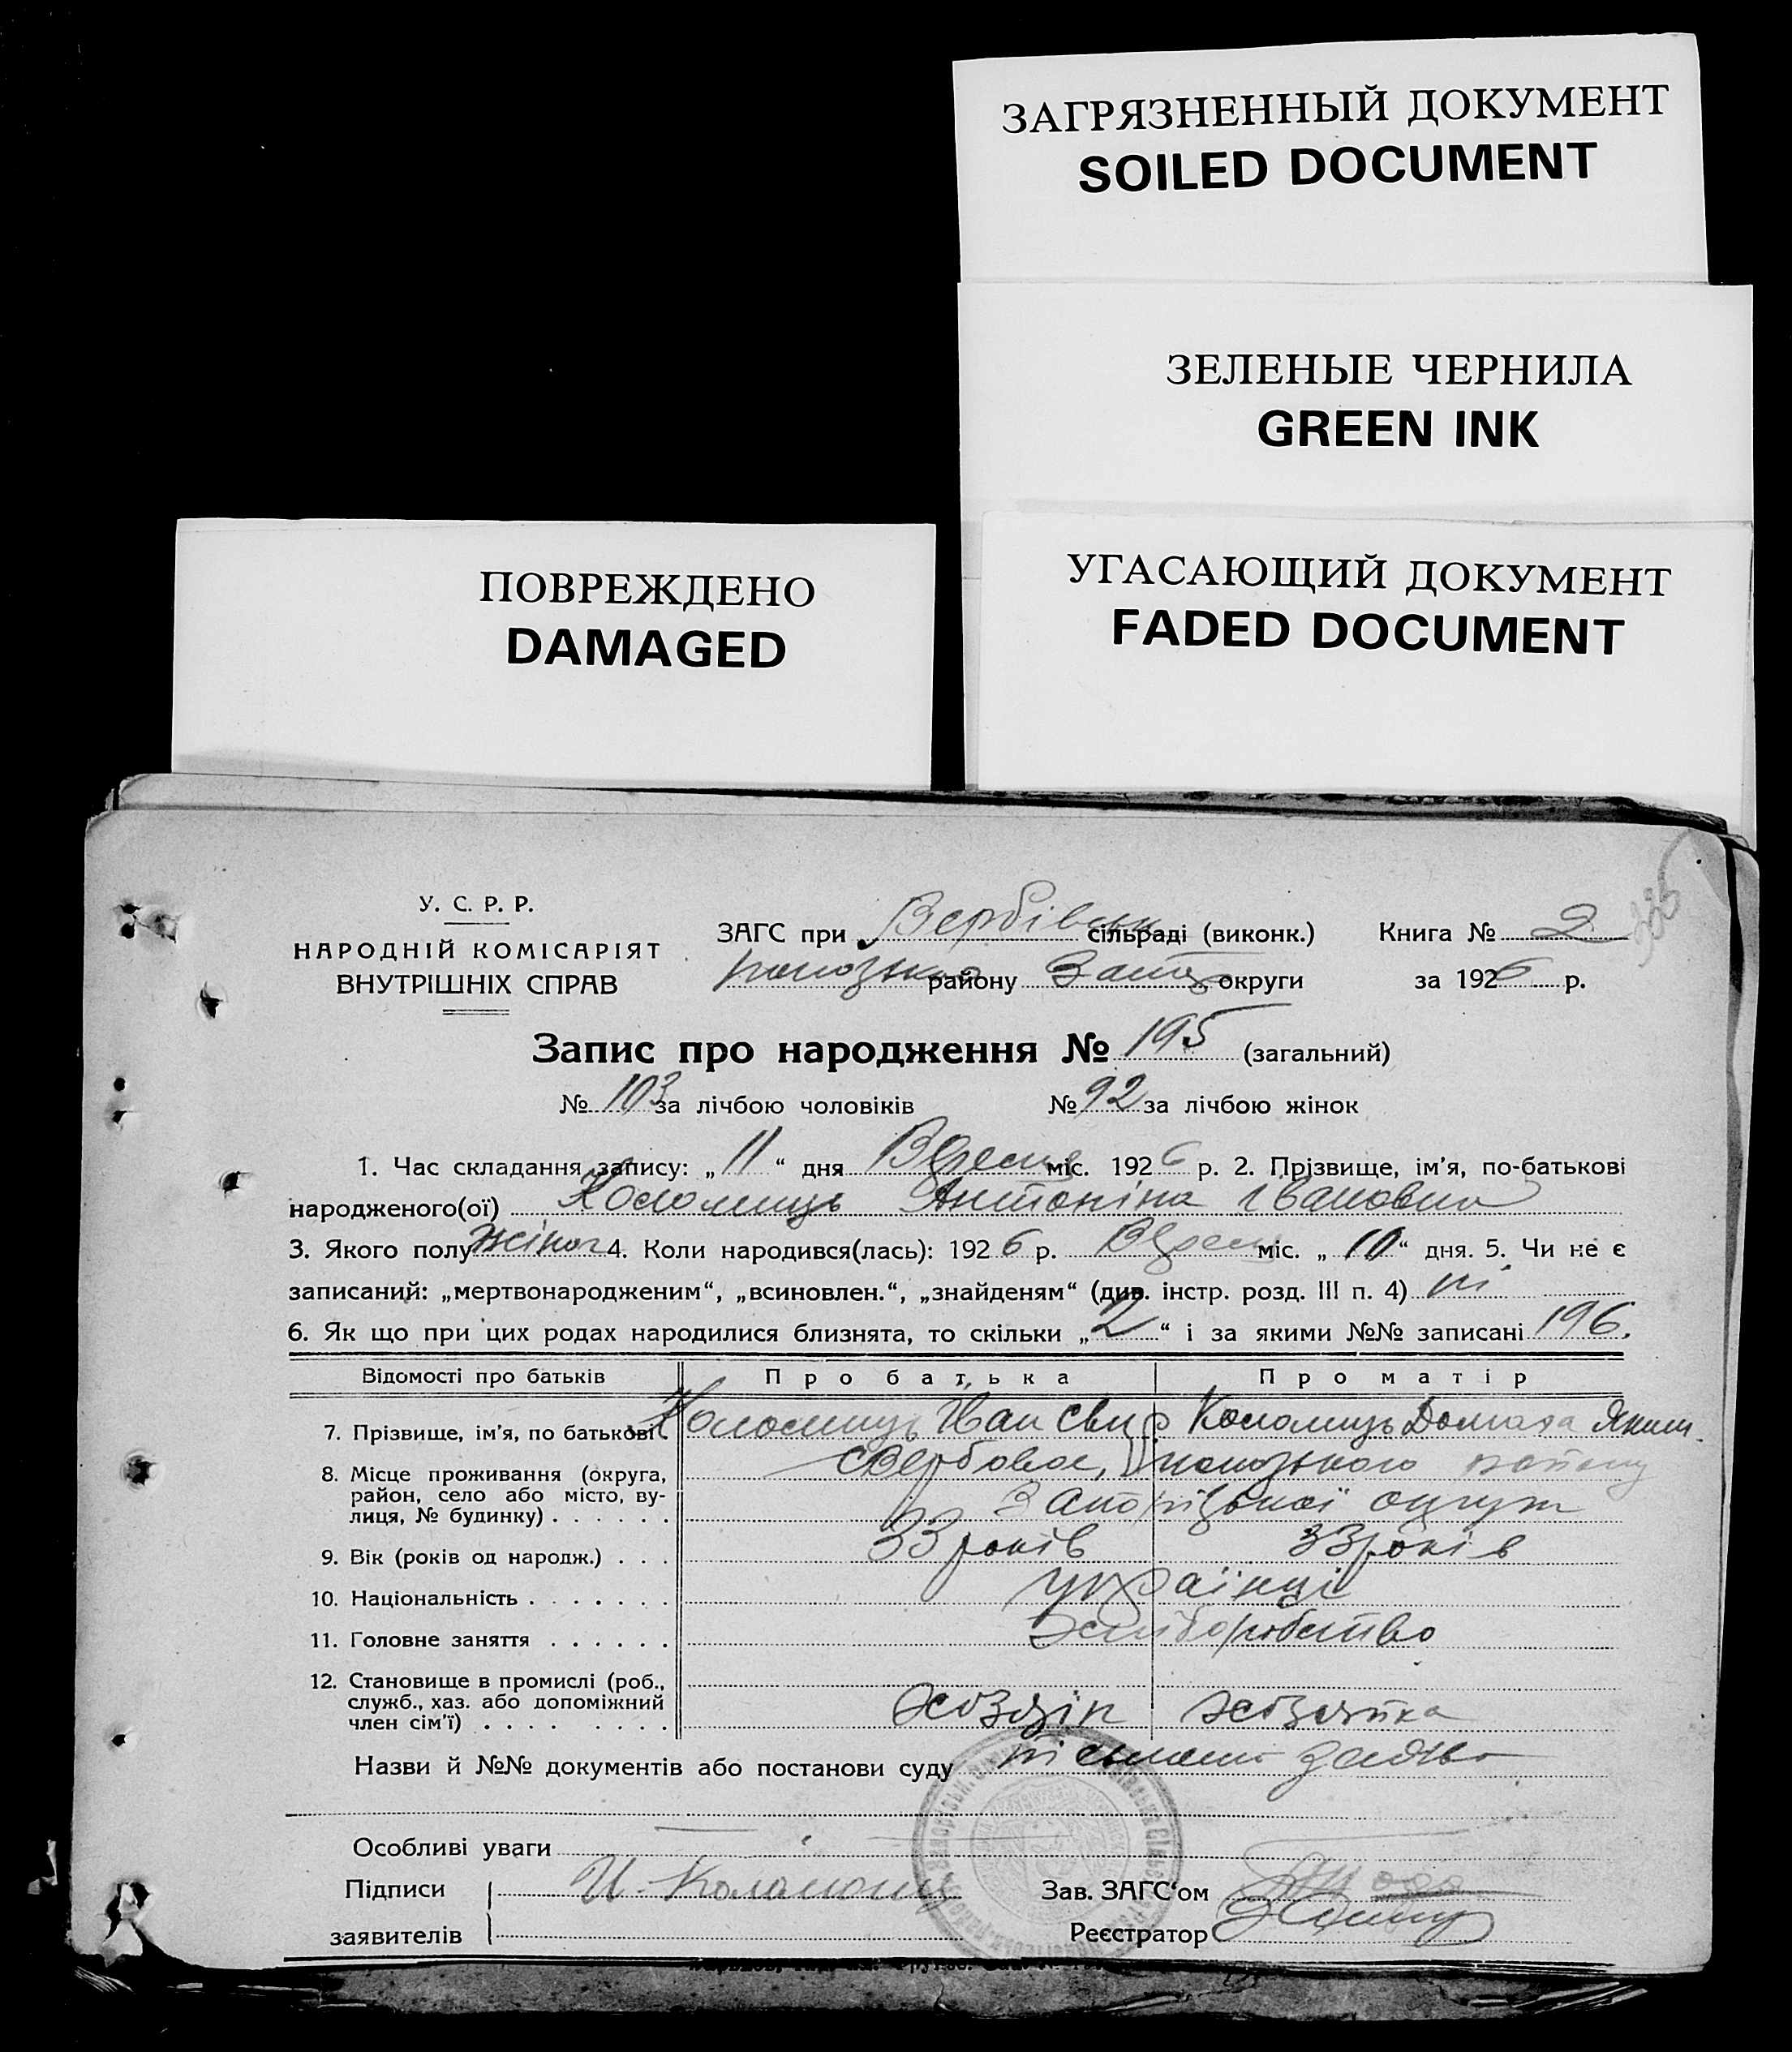 ЗАГРЯЗНЕННЫЙ ДОКУМЕНТ
SOILED DOCUMENT
ЗЕЛЕНЫЕ ЧЕРНИЛА
GREEN INK
УГАСАЮЩИЙ ДОКУМЕНТ
FADED DOCUMENT
ПОВРЕЖДЕНО
DAMAGED
У. С. Р. Р.
НАРОДНІЙ КОМІСАРІЯТ
ВНУТРІШНІХ СПРАВ
ЗАГС при Вербівськ сільраді (виконк.)
району Запор округи
Книга № 2
за 1926 р.
Запис про народження № 195 (загальний)
№ 103 за лічбою чоловіків № 92 за лічбою жінок
1. Час складання запису: „11“ дня Вересня міс. 1926 р. 2. Прізвище, ім'я, по-батькові
народженого(ої) Коломиць Антоніна Івановна
3. Якого полу жіноч 4. Коли народився(лась): 1926 р. Вересн міс. „10“ дня. 5. Чи не є
записаний: „мертвонародженим“, „всиновлен.“, „знайденям“ (див. інстр. розд. III п. 4) ні
6. Як що при цих родах народилися близнята, то скільки „2“ і за якими №№ записані 196.
Відомості про батьків Про батька Про матір
7. Прізвище, ім'я, по батькові Коломиць Іван Свир Коломиць Домаха Яким.
8. Місце проживання (округа, район, село або місто, вулиця, № будинку) . . . . . . с Вербове, району
Запорізької округи
9. Вік (років од народж.) . . . 33 років 33 років
10. Національність . . . . . . . українці
11. Головне заняття . . . . . . хліборобство
12. Становище в промислі (роб., служб., хаз. або допоміжний член сім'ї) . . . . . . . . хозяїн хозяйка
Назви й №№ документів або постанови суду
Особливі уваги
Підписи заявителів И. Коломоиц
Зав. ЗАГС'ом
Реєстратор